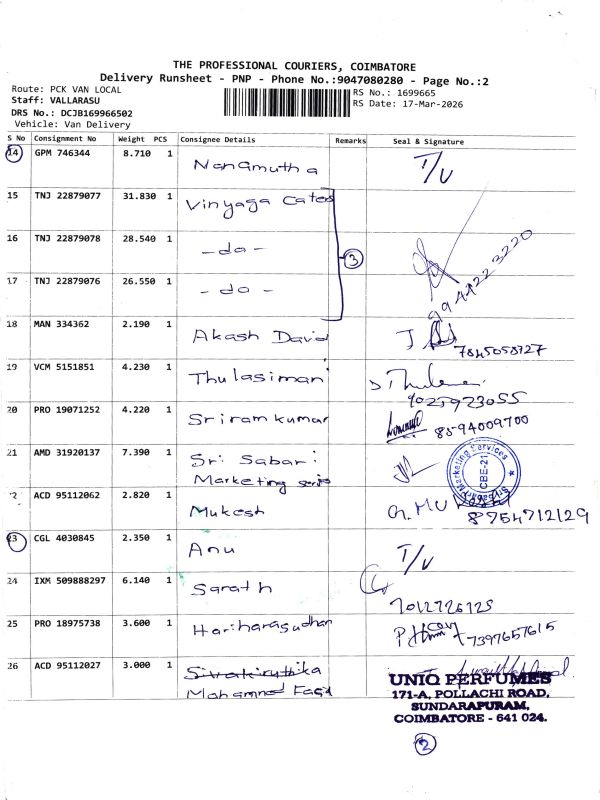 THE PROFESSIONAL COURIERS, COIMBATORE
Delivery Runsheet - PNP - Phone No.:9047080280 - Page No.:2
Route: PCK VAN LOCAL
Staff: VALLARASU
DRS No.: DCJB169966502
Vehicle: Van Delivery
RS No.: 1699665
RS Date: 17-Mar-2026
S No Consignment No Weight PCS Consignee Details Remarks Seal & Signature
14 GPM 746344 8.710 1 Nanamutha T/V
15 TNJ 22879077 31.830 1 Vinyaga Cates
16 TNJ 22879078 28.540 1 - do -
3
9944223220
17 TNJ 22879076 26.550 1 - do -
18 MAN 334362 2.190 1 Akash David
7845058727
19 VCM 5151851 4.230 1 Thulasimani
9025923055
20 PRO 19071252 4.220 1 Sriramkumar
8594009700
21 AMD 31920137 7.390 1 Sri Sabari
Marketing
Sri Sabari Marketing Services
CBE-21
22 ACD 95112062 2.820 1 Mukesh
8754712129
23 CGL 4030845 2.350 1 Anu T/V
24 IXM 509888297 6.140 1 Sarath
7012726125
25 PRO 18975738 3.600 1 Hariharasudhan
7397657615
26 ACD 95112027 3.000 1 Sivakiruthika
Mohammed
UNIQ PERFUMES
171-A, POLLACHI ROAD,
SUNDARAPURAM,
COIMBATORE - 641 024.
2